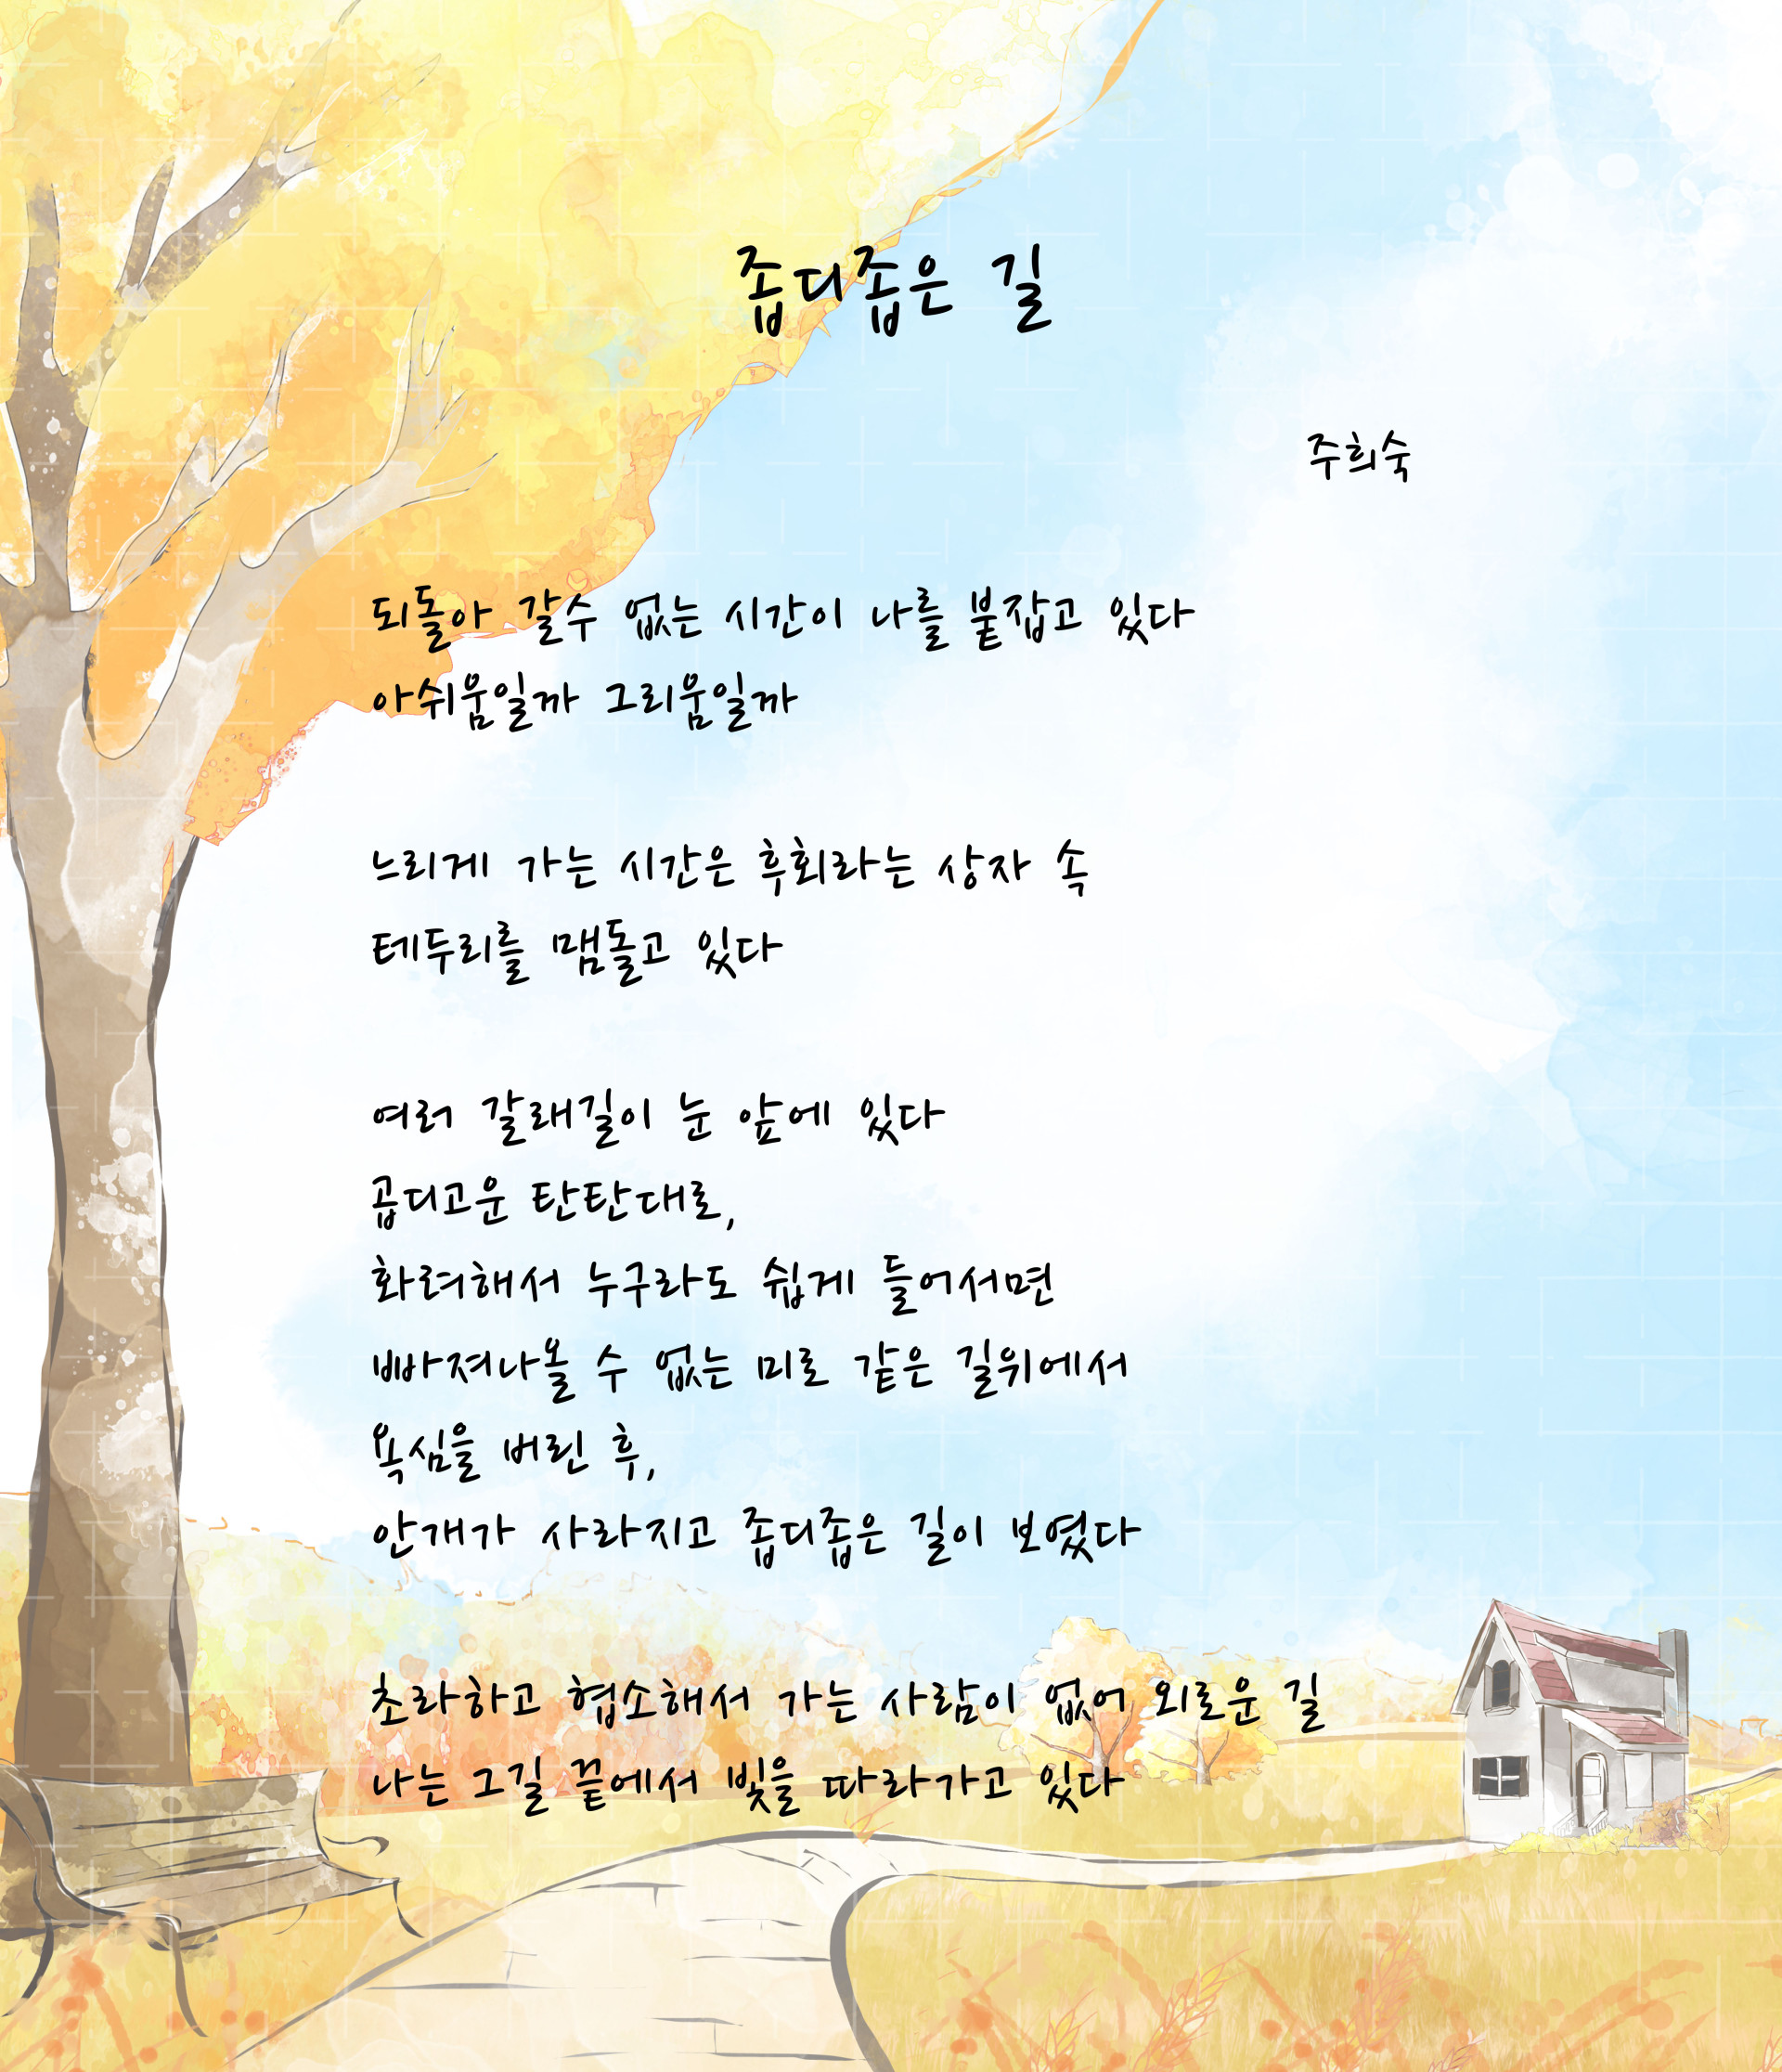 좁디좁은 길
주희숙
되돌아 갈수 없는 시간이 나를 붙잡고 있다
아쉬움일까 그리움일까
느리게 가는 시간은 후회라는 상자 속
테두리를 맴돌고 있다
여러 갈래길이 눈 앞에 있다
곱디고운 탄탄대로,
화려해서 누구라도 쉽게 들어서면
빠져나올 수 없는 미로 같은 길위에서
욕심을 버린 후,
안개가 사라지고 좁디좁은 길이 보였다
초라하고 협소해서 가는 사람이 없어 외로운 길
나는 그길 끝에서 빛을 따라가고 있다